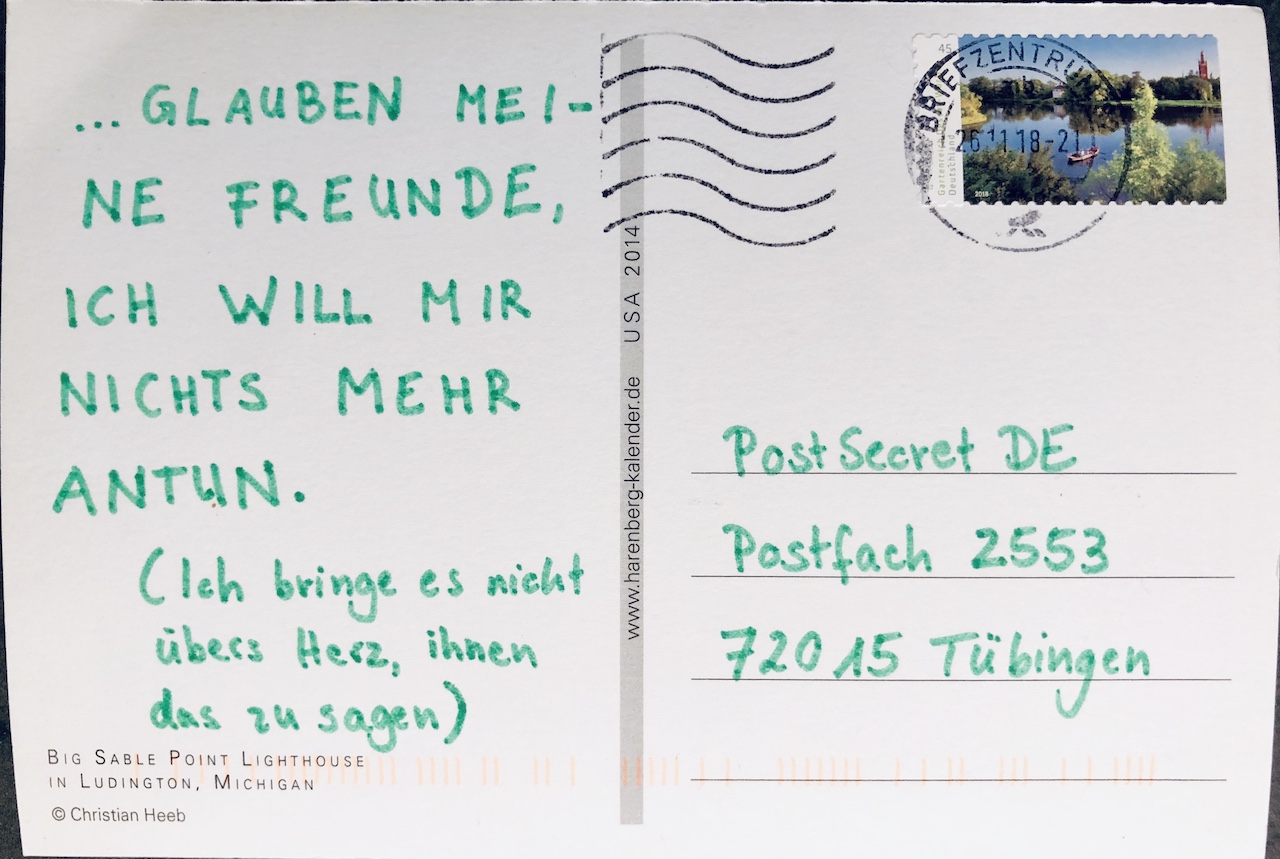 ...GLAUBEN MEI-
NE FREUNDE,
ICH WILL MIR
NICHTS MEHR
ANTUN.
(Ich bringe es nicht
übers Herz, ihnen
das zu sagen)
BIG SABLE POINT LIGHTHOUSE
IN LUDINGTON, MICHIGAN
© Christian Heeb
www.harenberg-kalender.de USA 2014
45
BRIEFZENTRU
26.11.18-21
Gartenreich
Deutschland
2018
PostSecret DE
Postfach 2553
72015 Tübingen